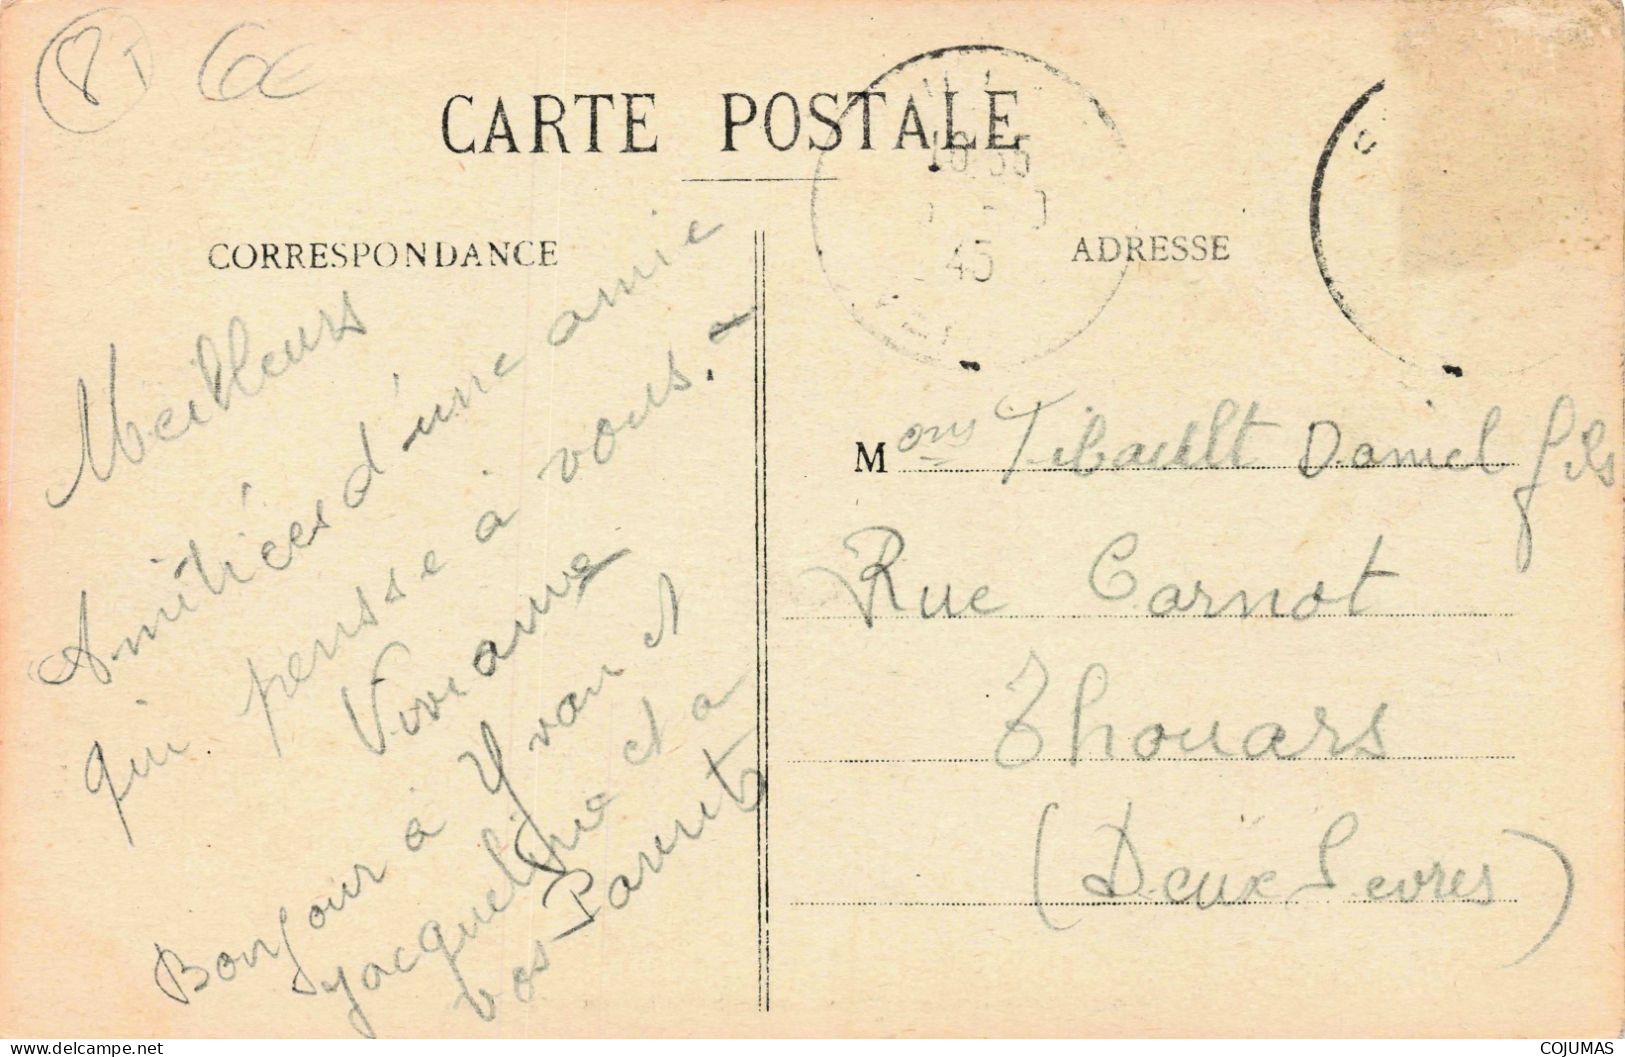 6€
CARTE POSTALE
CORRESPONDANCE
Meilleurs
Amitiées d'une amie
qui pensse à vous.-
Viviane
Bonjour à Yvon et
Jacqueline et a
vos Parents
18 35
45
ADRESSE
Mons Tibault Daniel fils
Rue Carnot
Thouars
(Deux Sevres)
www.delcampe.net
COJUMAS